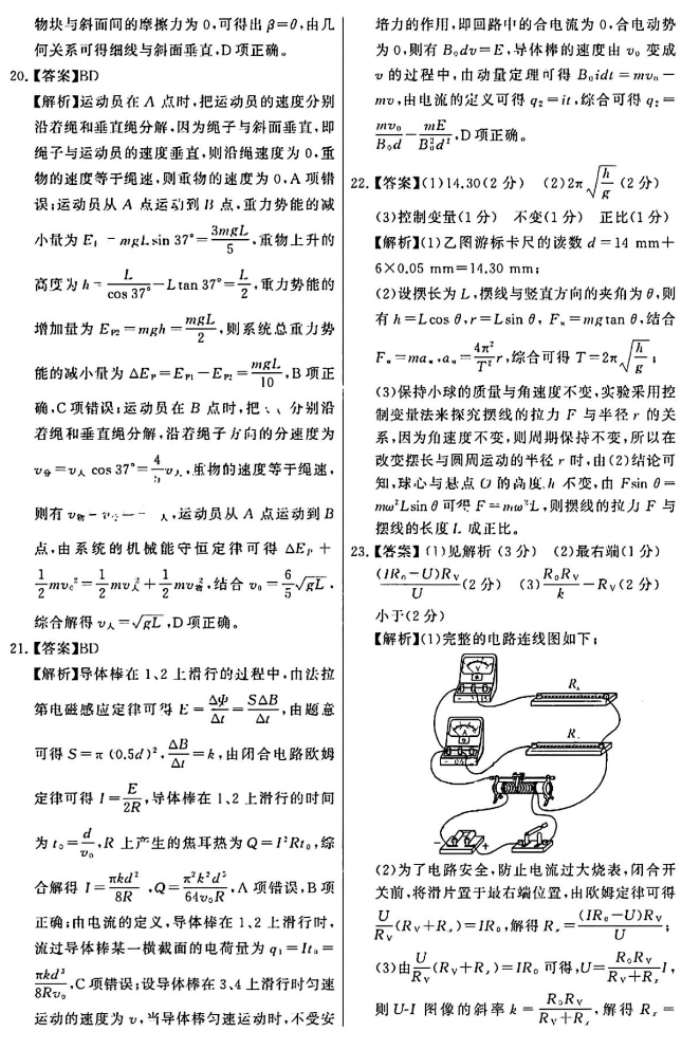 物块与斜面间的摩擦力为 0,可得出 β=θ,由几
何关系可得细线与斜面垂直,D 项正确。
20.【答案】BD
【解析】运动员在 A 点时,把运动员的速度分别
沿着绳和垂直绳分解,因为绳子与斜面垂直,即
绳子与运动员的速度垂直,则沿绳速度为 0,重
物的速度等于绳速,则重物的速度为 0,A 项错
误;运动员从 A 点运动到 B 点,重力势能的减
小量为 E₁ = mgLsin 37°=3mgL/5,重物上升的
高度为 h = L/cos 37° - Ltan 37°=L/2,重力势能的
增加量为 E_P2=mgh=mgL/2,则系统总重力势
能的减小量为 ΔE_P=E_P1-E_P2=mgL/10,B 项正
确,C 项错误;运动员在 B 点时,把 分别沿
着绳和垂直绳分解,沿着绳子方向的分速度为
v_分=v_人 cos 37°=4/5 v_人,重物的速度等于绳速,
则有 v_物= 人,运动员从 A 点运动到 B
点,由系统的机械能守恒定律可得 ΔE_P +
1/2 mv₀²=1/2 mv²_人+1/2 mv²_物,结合 v₀=6/5 √gL,
综合解得 v_人=√gL,D 项正确。
21.【答案】BD
【解析】导体棒在 1、2 上滑行的过程中,由法拉
第电磁感应定律可得 E=ΔΨ/Δt=SΔB/Δt,由题意
可得 S=π(0.5d)²,ΔB/Δt=k,由闭合电路欧姆
定律可得 I=E/2R,导体棒在 1、2 上滑行的时间
为 t₀=d/v₀,R 上产生的焦耳热为 Q=I²Rt₀,综
合解得 I=πkd²/8R,Q=π²k²d⁵/64v₀R,A 项错误,B 项
正确;由电流的定义,导体棒在 1、2 上滑行时,
流过导体棒某一横截面的电荷量为 q₁=It₀=
πkd³/8Rv₀,C 项错误;设导体棒在 3、4 上滑行时匀速
运动的速度为 v,当导体棒匀速运动时,不受安
培力的作用,即回路中的合电流为 0,合电动势
为 0,则有 B₀dv=E,导体棒的速度由 v₀ 变成
v 的过程中,由动量定理可得 B₀idt=mv₀-
mv,由电流的定义可得 q₂=it,综合可得 q₂=
mv₀/B₀d-mE/B₀²d²,D 项正确。
22.【答案】(1)14.30(2 分) (2)2π√(h/g)(2 分)
(3)控制变量(1 分) 不变(1 分) 正比(1 分)
【解析】(1)乙图游标卡尺的读数 d=14 mm+
6×0.05 mm=14.30 mm;
(2)设摆长为 L,摆线与竖直方向的夹角为 θ,则
有 h=Lcos θ,r=Lsin θ, F_n=mgtan θ,结合
F_n=ma_n,a_n=4π²/T² r,综合可得 T=2π√(h/g);
(3)保持小球的质量与角速度不变,实验采用控
制变量法来探究摆线的拉力 F 与半径 r 的关
系,因为角速度不变,则周期保持不变,所以在
改变摆长与圆周运动的半径 r 时,由(2)结论可
知,球心与悬点 O 的高度 h 不变,由 Fsin θ=
mω²Lsin θ可得 F=mω²L,则摆线的拉力 F 与
摆线的长度 L 成正比。
23.【答案】(1)见解析(3 分) (2)最右端(1 分)
(IR₀-U)R_V/U(2 分) (3)R₀R_V/k-R_V(2 分)
小于(2 分)
【解析】(1)完整的电路连线图如下:
V
R
R
(2)为了电路安全,防止电流过大烧表,闭合开
关前,将滑片置于最右端位置,由欧姆定律可得
U/R_V(R_V+R_x)=IR₀,解得 R_x=(IR₀-U)R_V/U;
(3)由U/R_V(R_V+R_x)=IR₀ 可得,U=R₀R_V/(R_V+R_x) I,
则 U-I 图像的斜率 k=R₀R_V/(R_V+R_x),解得 R_x=